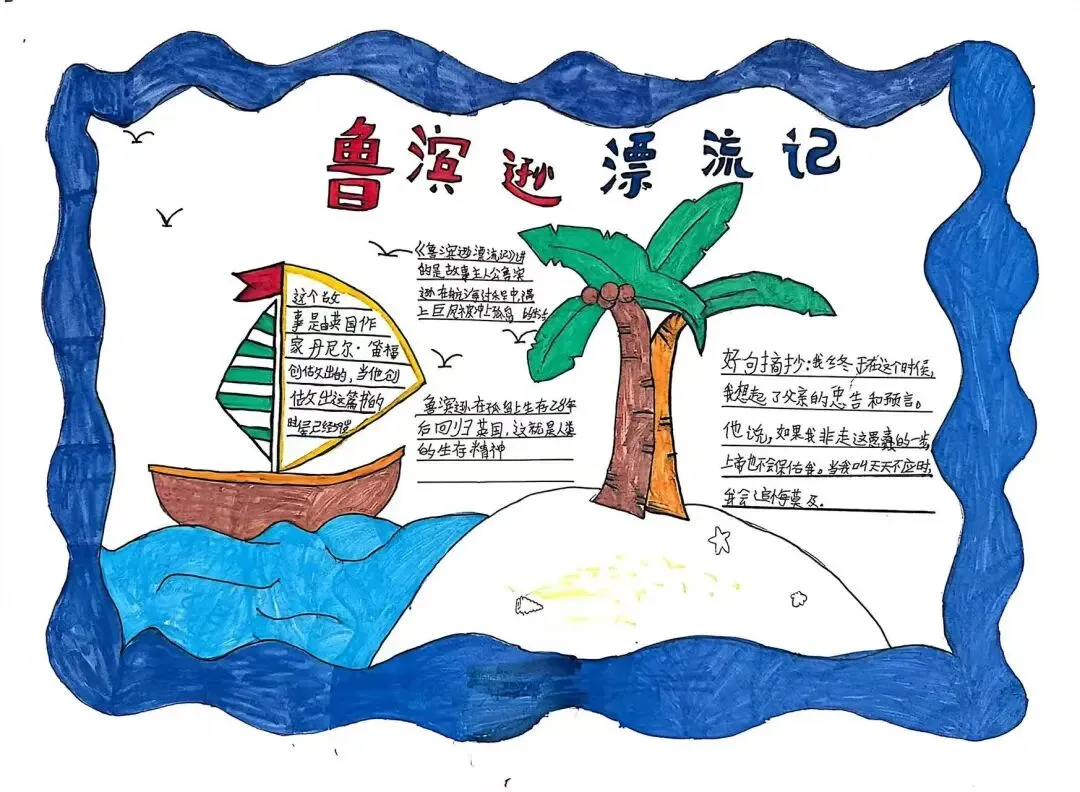 鲁滨逊漂流记
《鲁滨逊漂流记》讲
的是故事主人公鲁滨
逊在航海过程中,遇
上巨风被冲上孤岛的
这个故
事是由英国作
家丹尼尔·笛福
创做出的,当他创
做出这篇书的
时是已经
鲁滨逊在孤岛上生存28年
后回归英国,这就是人类
的生存精神
好句摘抄:我终于在这个时候,
我想起了父亲的忠告和预言。
他说,如果我非走这愚蠢的一步,
上帝也不会保佑我。当我叫天天不应时,
我会追悔莫及.